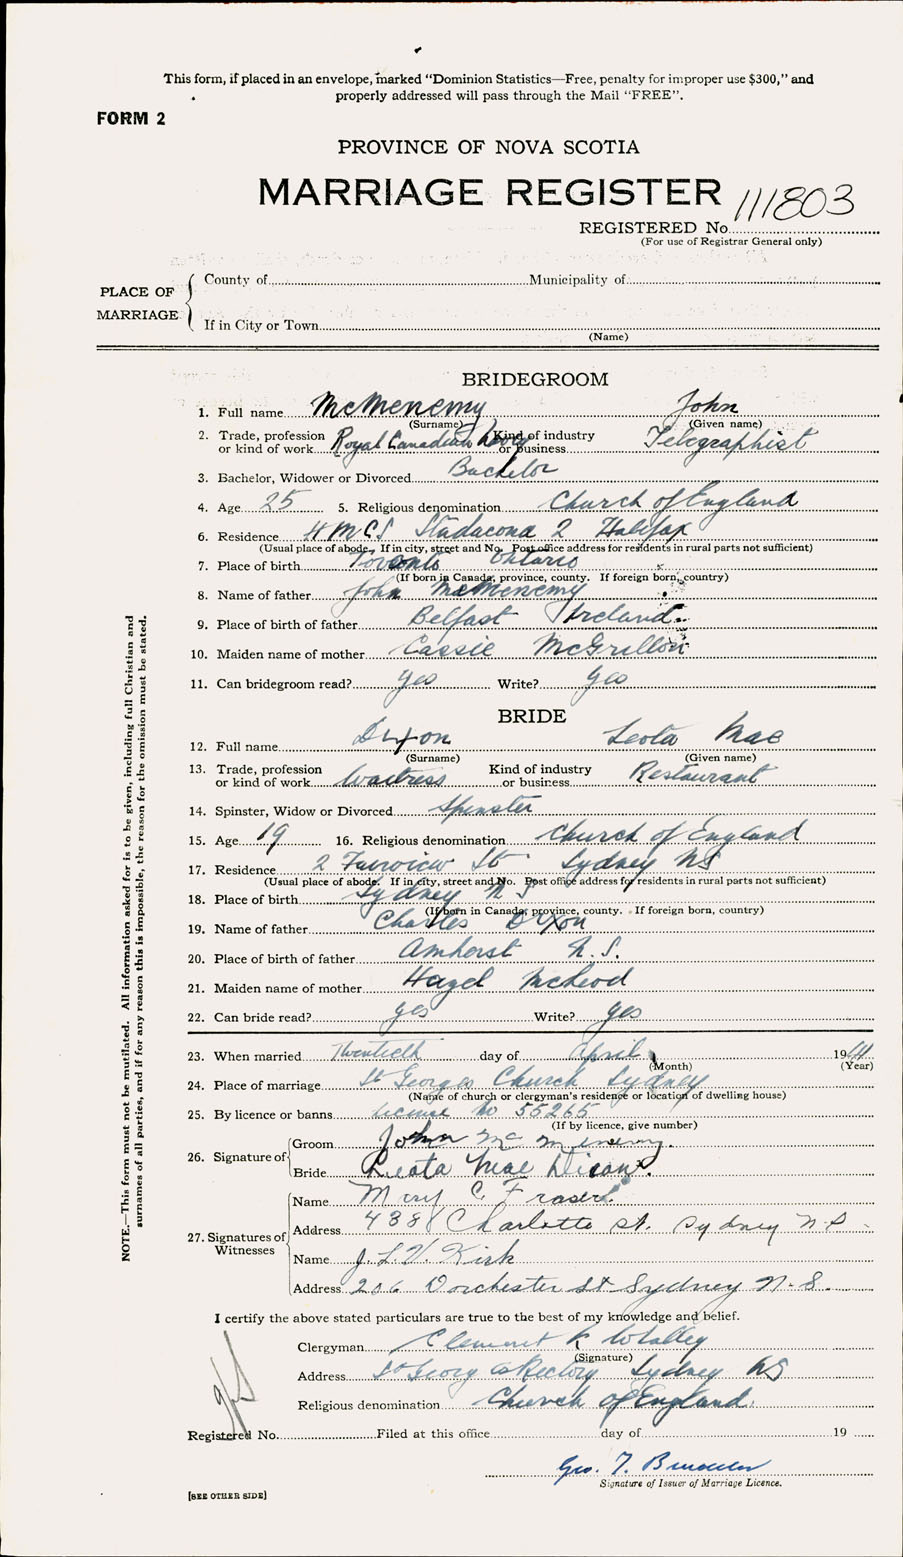 This form, if placed in an envelope, marked “Dominion Statistics—Free, penalty for improper use $300,” and
properly addressed will pass through the Mail “FREE”.
FORM 2
PROVINCE OF NOVA SCOTIA
MARRIAGE REGISTER
111803
REGISTERED No.
(For use of Registrar General only)
PLACE OF MARRIAGE
County of Municipality of
If in City or Town
(Name)
BRIDEGROOM
1. Full name McMenemy John
(Surname) (Given name)
2. Trade, profession or kind of work Royal Canadian Navy Kind of industry or business Telegraphist
3. Bachelor, Widower or Divorced Bachelor
4. Age 25 5. Religious denomination Church of England
6. Residence HMCS Stadacona 2 Halifax
(Usual place of abode. If in city, street and No. Post office address for residents in rural parts not sufficient)
7. Place of birth Toronto Ontario
(If born in Canada, province, county. If foreign born, country)
8. Name of father John McMenemy
9. Place of birth of father Belfast Ireland
10. Maiden name of mother Cassie McGrillon
11. Can bridegroom read? yes Write? yes
BRIDE
12. Full name Dixon Leota Mae
(Surname) (Given name)
13. Trade, profession or kind of work Waitress Kind of industry or business Restaurant
14. Spinster, Widow or Divorced Spinster
15. Age 19 16. Religious denomination Church of England
17. Residence 2 Fairview St Sydney NS
(Usual place of abode. If in city, street and No. Post office address for residents in rural parts not sufficient)
18. Place of birth Sydney N S
(If born in Canada, province, county. If foreign born, country)
19. Name of father Charles Dixon
20. Place of birth of father Amherst N.S.
21. Maiden name of mother Hazel McLeod
22. Can bride read? yes Write? yes
23. When married Twentieth day of April 1944
(Month) (Year)
24. Place of marriage St Georges Church Sydney
(Name of church or clergyman's residence or location of dwelling house)
25. By licence or banns license No 55265
(If by licence, give number)
26. Signature of
Groom John McMenemy.
Bride Leota Mae Dixon.
27. Signatures of Witnesses
Name Mary C. Fraser.
Address 438 Charlotte St. Sydney N S
Name J. L. V. Kirk
Address 206 Dorchester St Sydney N.S.
I certify the above stated particulars are true to the best of my knowledge and belief.
Clergyman Clement Whalley
(Signature)
Address St Georges Rectory Sydney NS
Religious denomination Church of England.
Registered No. Filed at this office day of 19
Geo. T.
Signature of Issuer of Marriage Licence.
[SEE OTHER SIDE]
NOTE.—This form must not be mutilated. All information asked for is to be given, including full Christian and
surnames of all parties, and if for any reason this is impossible, the reason for the omission must be stated.